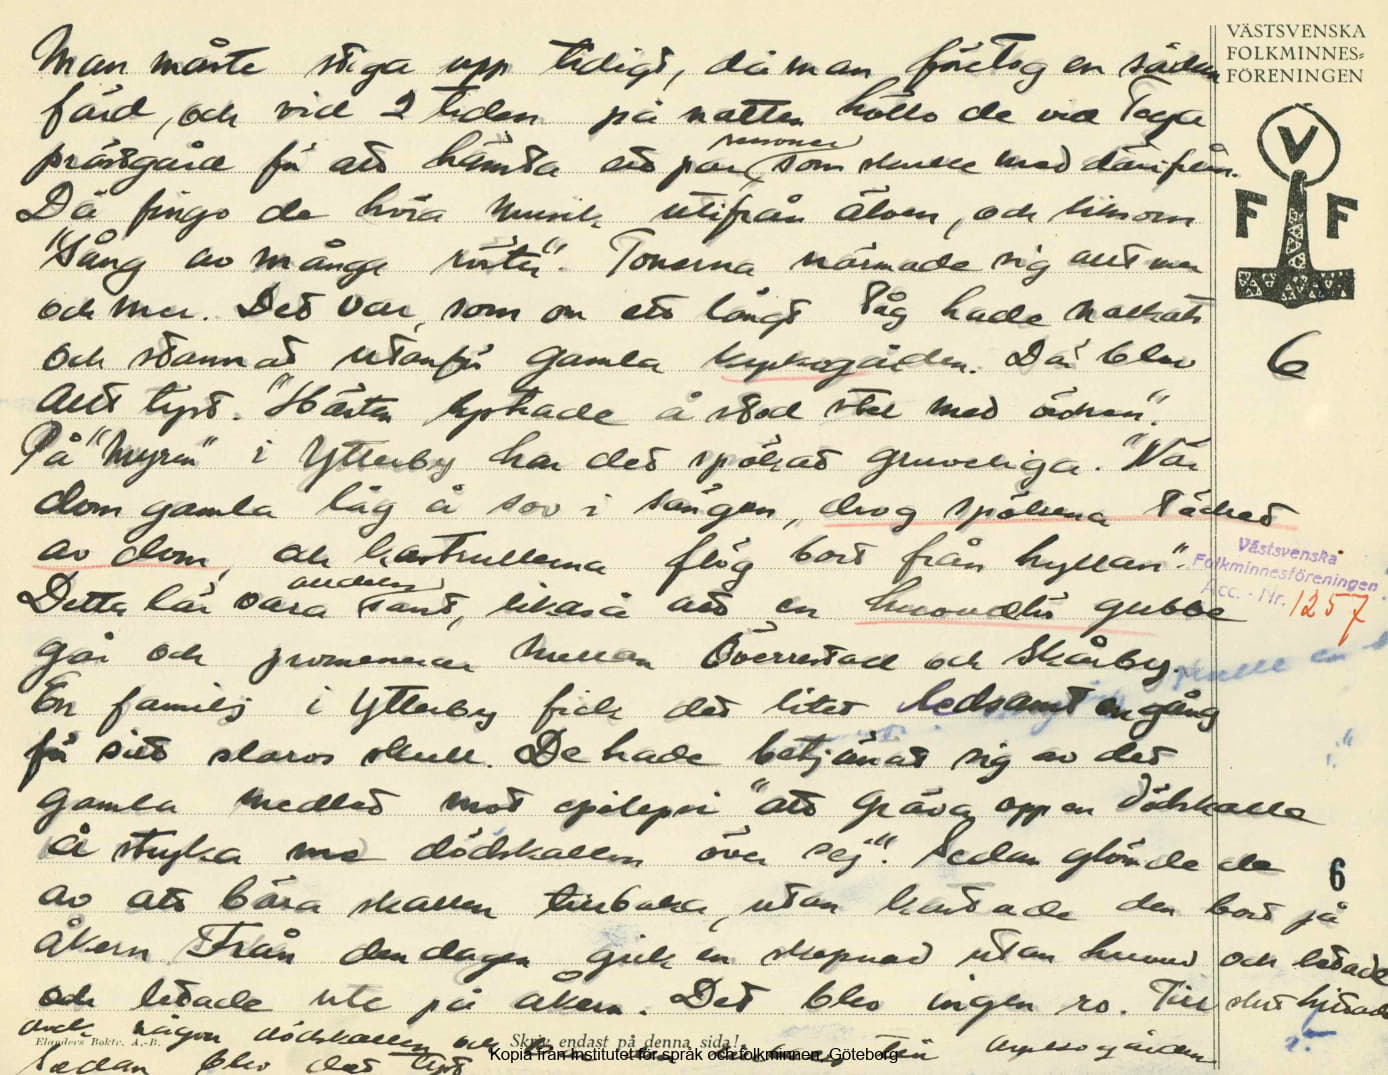 VÄSTSVENSKA
FOLKMINNES-
FÖRENINGEN
V
F F
6
Man måste stiga upp tidigt, då man företog en sådan
färd, och vid 2 tiden på natten höllo de vid Toga
prästgård för att hämta ett par personer som skulle med därifrån.
Då fingo de höra musik utifrån älven, och liksom
"sång av många röster". Tonerna närmade sig allt mer
och mer. Det var, som om ett långt tåg hade nalkats
och stannat utanför gamla kyrkogården. Då blev
allt tyst. "Hästen lystrade å stod stel med öronen".
På "Myren" i Ytterby har det spökat gruveliga. "När
dom gamla låg å sov i sängen, drog spökena täcket
av dom, och kastrullerna flög bort från hyllan".
Detta lär vara alldeles sant, likaså att en huvudlös gubbe
går och promenerar mellan Överrestad och Skårby.
En familj i Ytterby fick det litet ledsamt en gång
för sitt slarvs skull. De hade betjänat sig av det
gamla medlet mot epilepsi "att gräva opp en dödskalle
å stryka me dödskallen över sej". Sedan glömde de
av att bära skallen tillbaka, utan kastade den bort på
åkern. Från den dagen gick en skepnad utan huvud och letade
och letade ute på åkern. Det blev ingen ro. Till slut hittade
dock någon dödskallen och till kyrkogården
Sedan blev det tyst
Västsvenska
Folkminnesföreningen
Acc. - Nr. 1257
6
Elanders Boktr. A.-B.
Skriv endast på denna sida!
Kopia från Institutet för språk och folkminnen, Göteborg